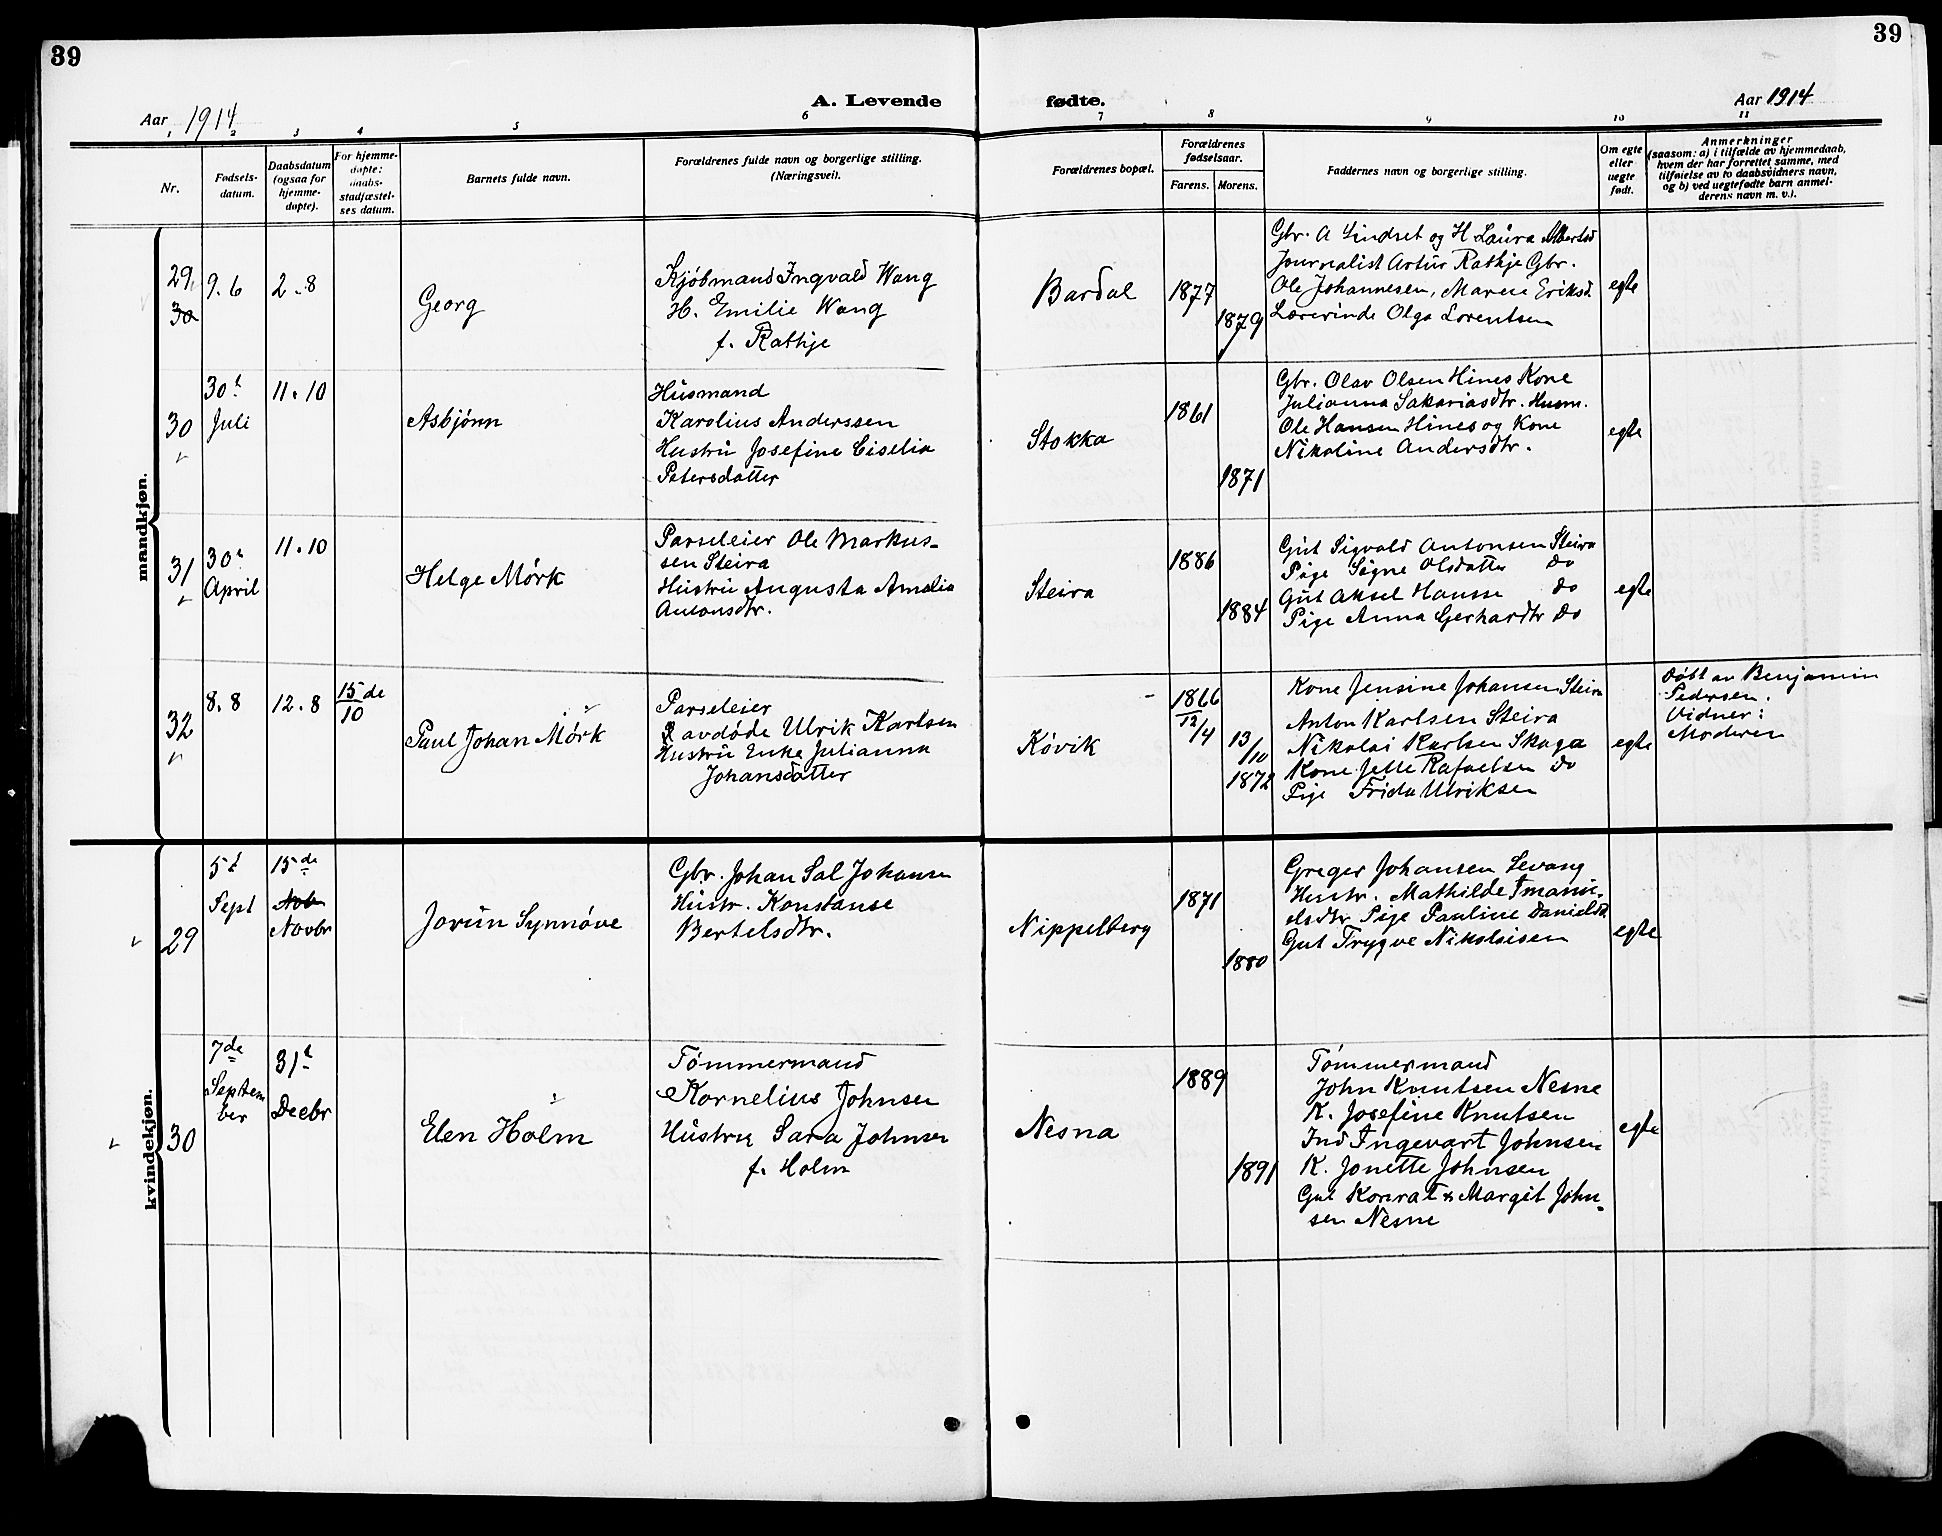 39
39
Aar 1914
A. Levende
fødte.
Aar 1914
1 2 3 4 5 6 7 8 9 10 11
Nr.
Fødsels-
datum.
Daabsdatum
(ogsaa for
hjemme-
døpte).
For hjemme-
døpte;
daabs-
stadfæstel-
ses datum.
Barnets fulde navn.
Forældrenes fulde navn og borgerlige stilling.
(Næringsvei).
Forældrenes bopæl.
Forældrenes
fødselsaar.
Farens. Morens.
Faddernes navn og borgerlige stilling.
Om egte
eller
uegte
født.
Anmerkninger
(saasom: a) i tilfælde av hjemmedaab,
hvem der har forrettet samme, med
tilføielse av to daabsvidners navn,
og b) ved uegtefødte barn anmel-
derens navn m. v.).
mandkjøn.
29
30
9.6
2.8
Georg
Kjøbmand Ingvald Wang
H. Emilie Wang
f. Rathje
Bardal
1877
1879
Gbr. A Sindset og H Laura Albertsd
Journalist Artur Rathje Gbr.
Ole Johannesen, Maren Eriksd.
Lærerinde Olga Lorentsen
egte
30
30t
Juli
11.10
Asbjønn
Husmand
Karolius Anderssen
Hustru Josefine Ciselia
Petersdatter
Stokka
1861
1871
Gbr. Olav Olsen Hines Kone
Julianna Sakariasdtr. Husm.
Ole Hansen Hines og Kone
Nikoline Andersdtr.
egte
31
30t
April
11.10
Helge Mørk
Parseleier Ole Markus-
sen Steira
Hustru Augusta Amalia
Antonsdtr.
Steira
1886
1884
Gut Sigvald Antonsen Steira
Pige Signe Olsdatter do
Gut Aksel Hansse do
Pige Anna Gerhardtr do
egte
32
8.8
12.8
15de
10
Paul Johan Mørk
Parseleier
avdøde Ulrik Karlsen
Hustru Enke Julianna
Johansdatter
Køvik
1866
12/4
13/10
1872
Kone Jensine Johansen Steira
Anton Karlsen Steira
Nikolai Karlsen Skaga
Kone Jette Rafaelsen do
Pige Frida Ulriksen
egte
døbt av Benjamin
Pedersen.
Vidner:
Moderen
kvindekjøn.
29
5t
Sept
15de
Nob
Novbr
Jorun Synnøve
Gbr. Johan Sal Johansen
Hustr. Konstanse
Bertelsdtr.
Nippelberg
1871
1880
Greger Johansen Levang
Hustr. Mathilde Imanu-
elsdtr Pige Pauline Danielsd.
Gut Trygve Nikolaisen
egte
30
7de
Septem
ber
31t
Decbr
Elen Holm
Tømmermand
Kornelius Johnsen
Hustru Sara Johnsen
f. Holm
Nesna
1889
1891
Tømmermand
John Knutsen Nesne
K. Josefine Knutsen
Ind Ingevart Johnsen
K. Jonette Johnsen
Gut Konrat & Margit John-
sen Nesne
egte